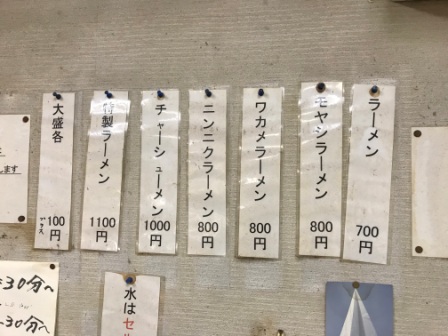 ラーメン 700円
モヤシラーメン 800円
ワカメラーメン 800円
ニンニクラーメン 800円
チャーシューメン 1000円
特製ラーメン 1100円
大盛各 プラス 100円
します
30分へ
30分へ
水はセ